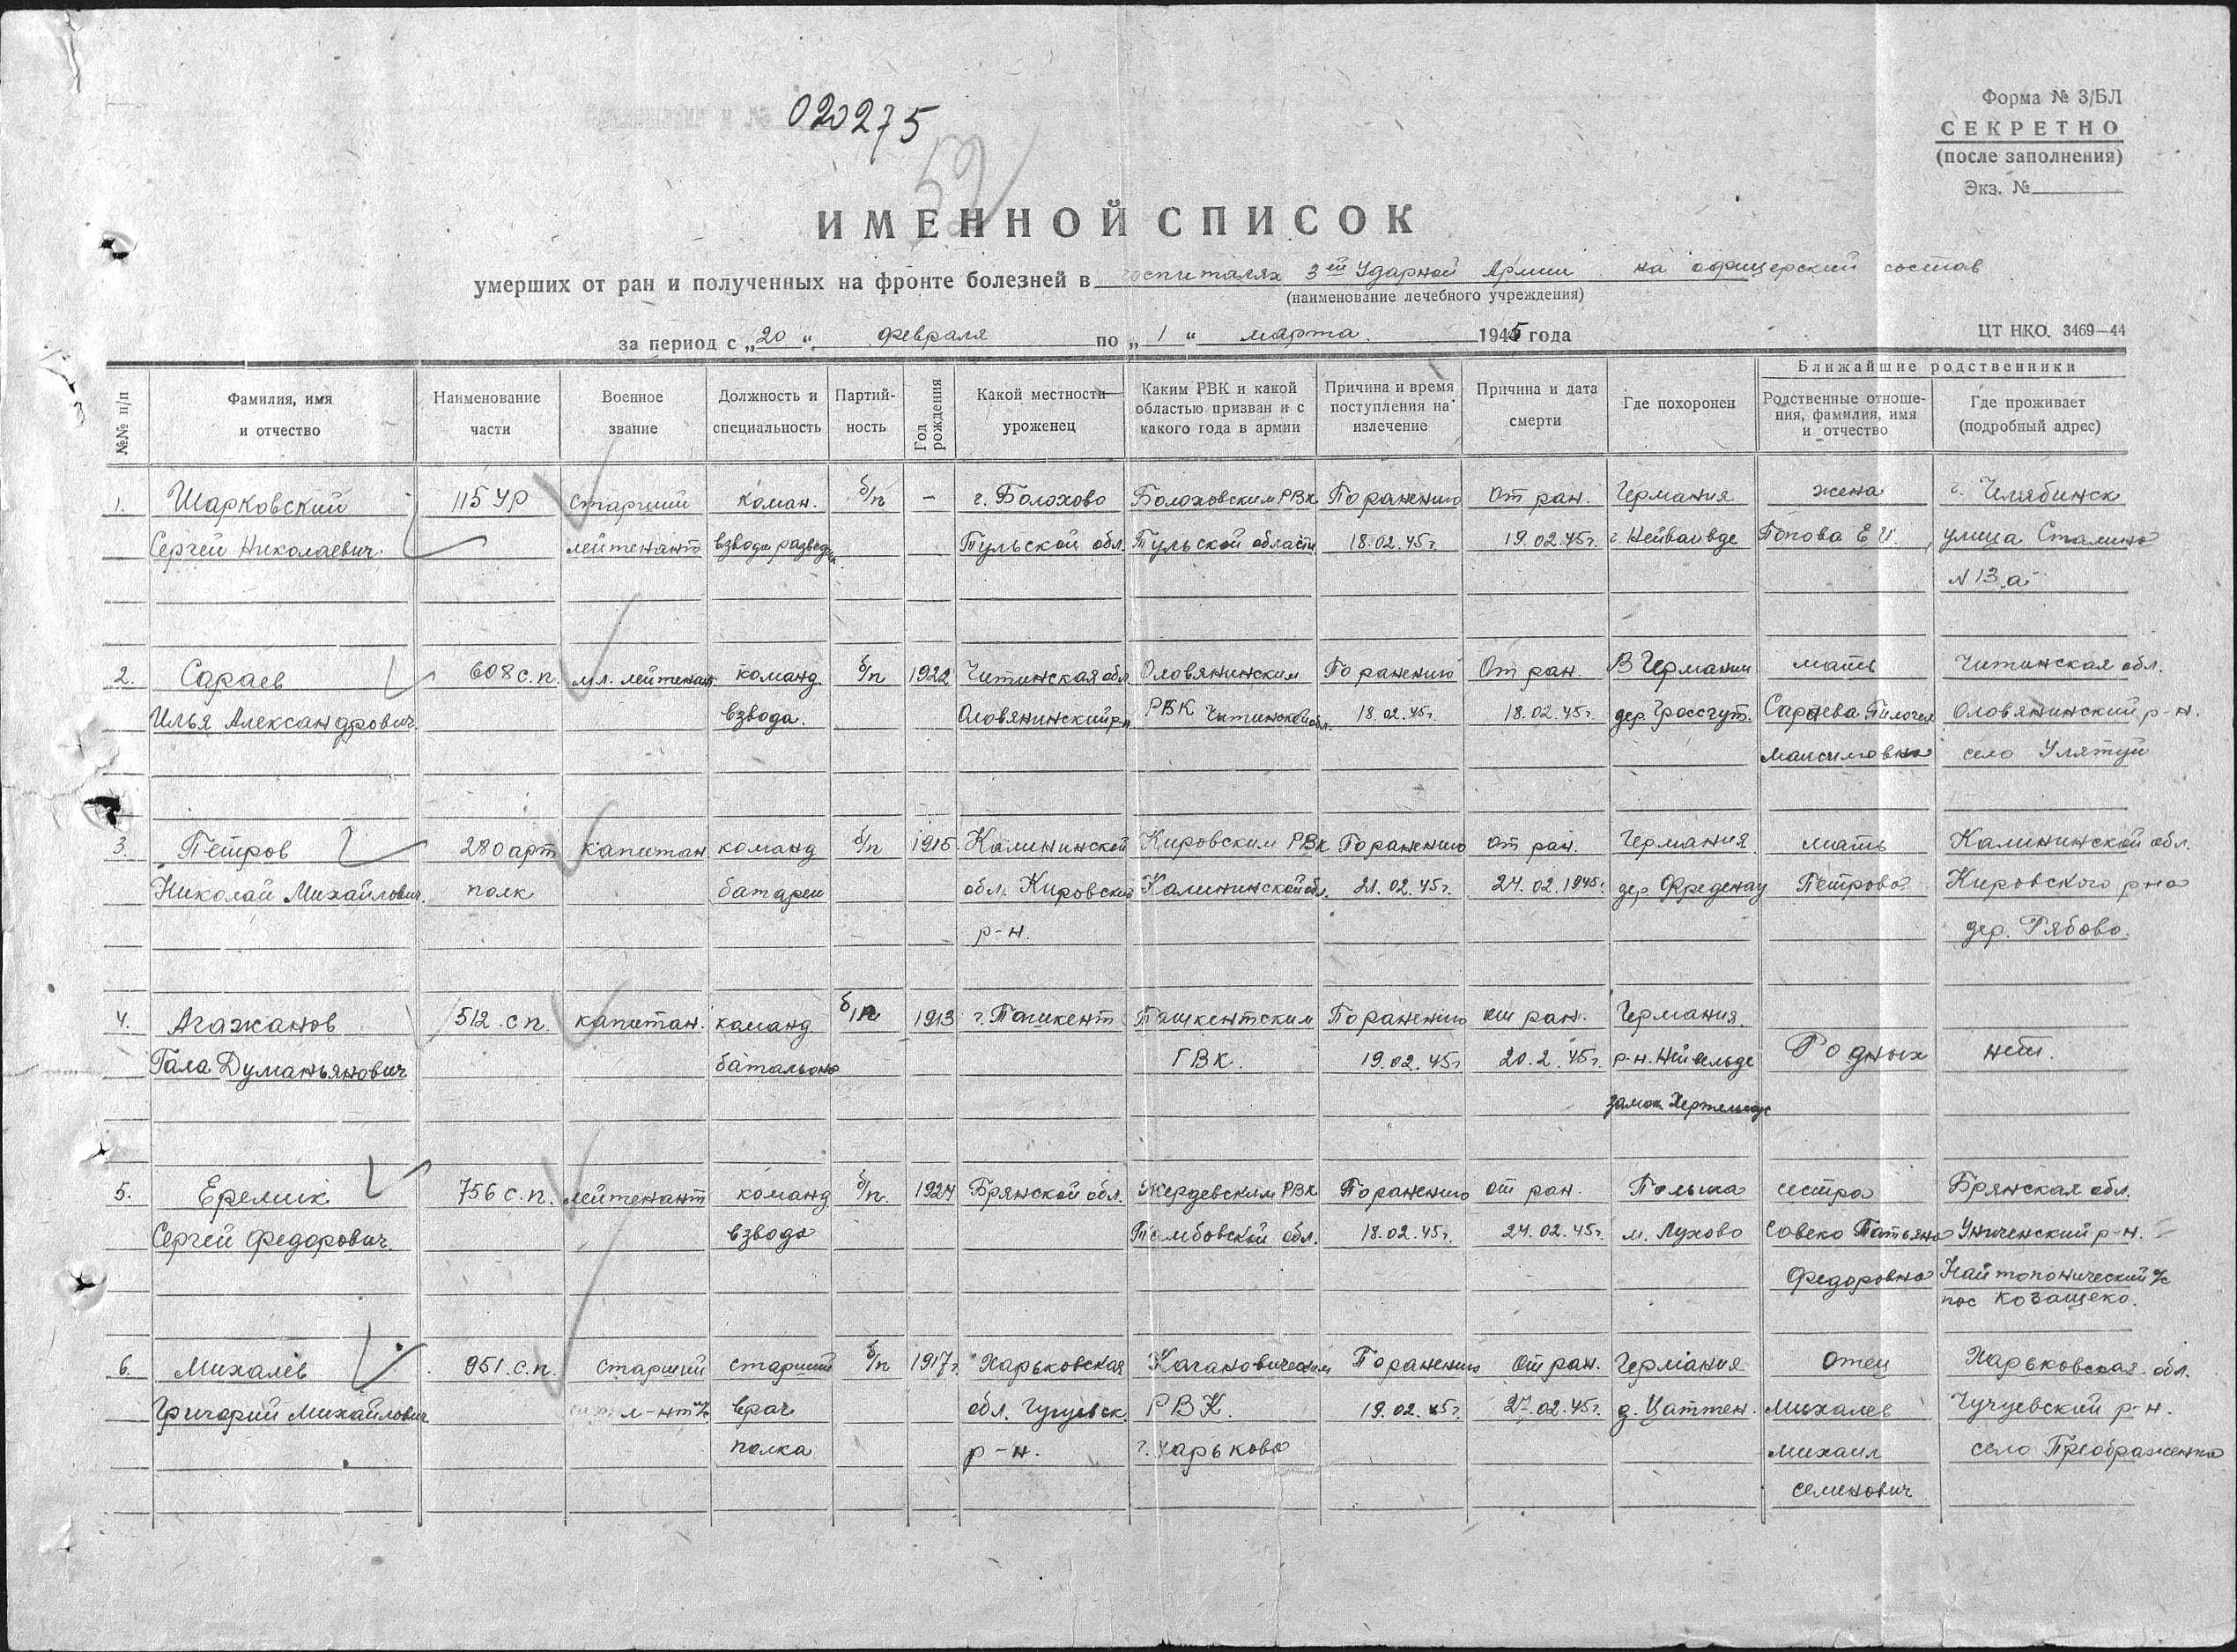 020275
52
Форма № 3/БЛ
СЕКРЕТНО
(после заполнения)
Экз. №
ИМЕННОЙ СПИСОК
умерших от ран и полученных на фронте болезней в госпиталях 3ей Ударной Армии на офицерский состав
(наименование лечебного учреждения)
за период с „20“ февраля по „1“ марта 1945 года
ЦТ НКО. 3469—44
№№ п/п
Фамилия, имя и отчество
Наименование части
Военное звание
Должность и специальность
Партийность
Год рождения
Какой местности уроженец
Каким РВК и какой областью призван и с какого года в армии
Причина и время поступления на излечение
Причина и дата смерти
Где похоронен
Ближайшие родственники
Родственные отношения, фамилия, имя и отчество
Где проживает (подробный адрес)
1. Шарковский 115 УР старший коман. б/п – г. Болохово Болоховским РВк По ранению От ран. Германия жена г. Челябинск
Сергей Николаевич лейтенант взвода развед. Тульской обл. Тульской области 18.02.45г. 19.02.45г. г. Попова Е И. улица Сталина
N 13 а
2. Сараев 608 с.п. мл. лейтенант. команд. б/п 1922 Читинская обл Оловянинским По ранению От ран. В Германии мать Читинская обл.
Илья Александрович. взвода. Оловянинский р-н. РВК Читинской обл. 18.02.45г. 18.02.45г. дер. Гроссгут. Сараева Оловянинский р-н.
Максимовна село Улятуй
3. Петров 280 арт капитан команд б/п 1915. Калининской Кировским РВк По ранению От ран. Германия мать Калининской обл.
Николай Михайлович. полк батареи обл. Кировский Калининской обл. 21.02.45г. 24.02.1945г. дер. Фреденау Петрова Кировского р-на
р-н. дер. Рябово.
4. Агажанов 512 с п. капитан. команд. б/п 1913 г. Ташкент Ташкентским По ранению от ран. Германия.
Гала Думаньянович батальона ГВк. 19.02.45г 20.2.45г. р-н. Нейвельде Родных нет.
замок
5. Еремик 756 с.п. лейтенант команд б/п. 1924 Брянской обл. Жердевским РВк По ранению от ран. Польша сестра Брянская обл.
Сергей Федорович. взвода Тамбовской обл. 18.02.45г. 24.02.45г. м. Лухово Совеко Татьяна р-н.
Федоровна
пос Козащеко.
6. Михалев 951. с.п. старший старший б/п 1917г. Харьковская Кагановическим По ранению От ран. Германия Отец Харьковская обл.
Григорий Михайлович л-нт м/с врач обл. Чугуевск. РВК. 19.02.45г. 27.02.45г. д. Цаттен. Михалев Чугуевский р-н.
полка р-н. г. Харьково Михаил село Преображенка
Семенович